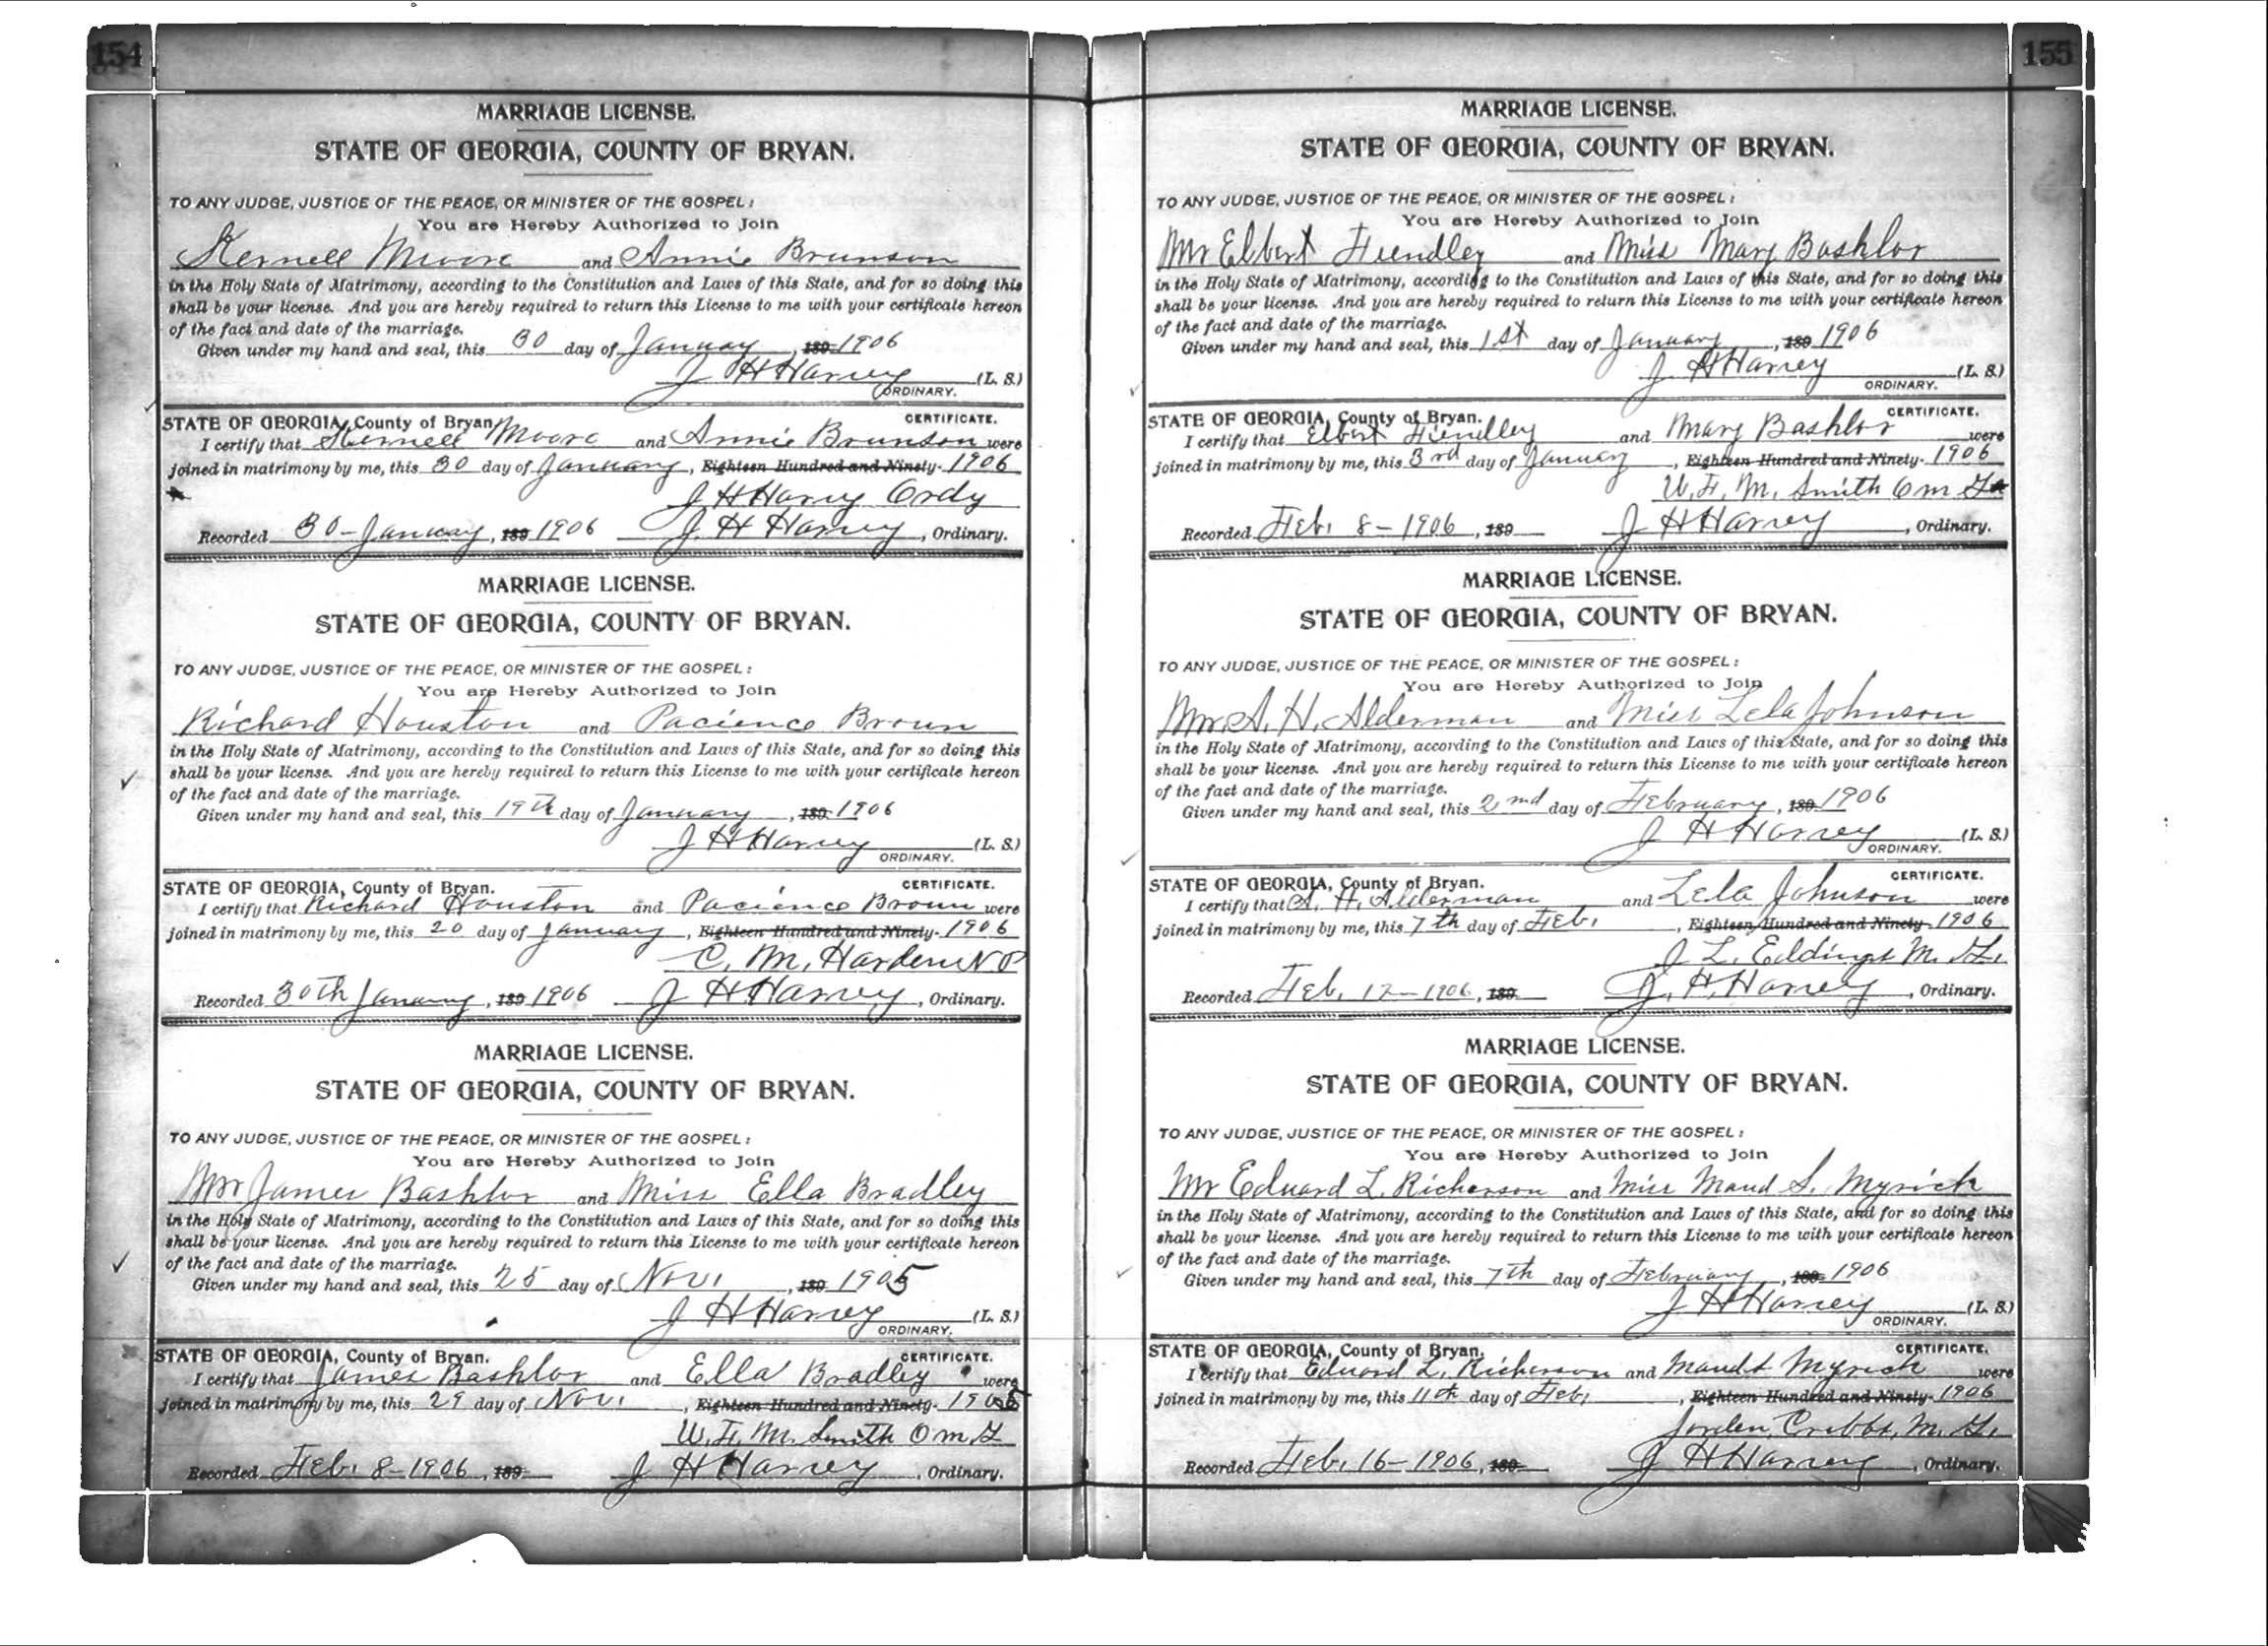 154
MARRIAGE LICENSE.
STATE OF GEORGIA, COUNTY OF BRYAN.
TO ANY JUDGE, JUSTICE OF THE PEACE, OR MINISTER OF THE GOSPEL:
You are Hereby Authorized to Join
Kernell Moore and Annie Brunson
in the Holy State of Matrimony, according to the Constitution and Laws of this State, and for so doing this
shall be your license. And you are hereby required to return this License to me with your certificate hereon
of the fact and date of the marriage.
Given under my hand and seal, this 30 day of January, 189 1906
J H Harvey (L. S.)
ORDINARY.
STATE OF GEORGIA, County of Bryan. CERTIFICATE.
I certify that Kernell Moore and Annie Brunson were
joined in matrimony by me, this 30 day of January, Eighteen Hundred and Ninety- 1906
J H Harvey Ordy
Recorded 30-January, 189 1906 J. H Harvey, Ordinary.
MARRIAGE LICENSE.
STATE OF GEORGIA, COUNTY OF BRYAN.
TO ANY JUDGE, JUSTICE OF THE PEACE, OR MINISTER OF THE GOSPEL:
You are Hereby Authorized to Join
Richard Houston and Pacience Brown
in the Holy State of Matrimony, according to the Constitution and Laws of this State, and for so doing this
shall be your license. And you are hereby required to return this License to me with your certificate hereon
of the fact and date of the marriage.
Given under my hand and seal, this 19th day of January, 189 1906
J H Harvey (L. S.)
ORDINARY.
STATE OF GEORGIA, County of Bryan. CERTIFICATE.
I certify that Richard Houston and Pacience Brown were
joined in matrimony by me, this 20 day of January, Eighteen Hundred and Ninety- 1906
C. M. Harden N P
Recorded 30th January, 189 1906 J H Harvey, Ordinary.
MARRIAGE LICENSE.
STATE OF GEORGIA, COUNTY OF BRYAN.
TO ANY JUDGE, JUSTICE OF THE PEACE, OR MINISTER OF THE GOSPEL:
You are Hereby Authorized to Join
Mr James Bashlor and Miss Ella Bradley
in the Holy State of Matrimony, according to the Constitution and Laws of this State, and for so doing this
shall be your license. And you are hereby required to return this License to me with your certificate hereon
of the fact and date of the marriage.
Given under my hand and seal, this 25 day of Nov., 189 1905
J H Harvey (L. S.)
ORDINARY.
STATE OF GEORGIA, County of Bryan. CERTIFICATE.
I certify that James Bashlor and Ella Bradley were
joined in matrimony by me, this 29 day of Nov., Eighteen Hundred and Ninety- 1905
W. F. M. Smith O m G
Recorded Feb. 8-1906, 189 J H Harvey, Ordinary.
155
MARRIAGE LICENSE.
STATE OF GEORGIA, COUNTY OF BRYAN.
TO ANY JUDGE, JUSTICE OF THE PEACE, OR MINISTER OF THE GOSPEL:
You are Hereby Authorized to Join
Mr Elbert Fiendley and Miss Mary Bashlor
in the Holy State of Matrimony, according to the Constitution and Laws of this State, and for so doing this
shall be your license. And you are hereby required to return this License to me with your certificate hereon
of the fact and date of the marriage.
Given under my hand and seal, this 1st day of January, 189 1906
J H Harvey (L. S.)
ORDINARY.
STATE OF GEORGIA, County of Bryan. CERTIFICATE.
I certify that Elbert Fiendley and Mary Bashlor were
joined in matrimony by me, this 3rd day of January, Eighteen Hundred and Ninety- 1906
W. F. M. Smith O m G
Recorded Feb. 8-1906, 189 J H Harvey, Ordinary.
MARRIAGE LICENSE.
STATE OF GEORGIA, COUNTY OF BRYAN.
TO ANY JUDGE, JUSTICE OF THE PEACE, OR MINISTER OF THE GOSPEL:
You are Hereby Authorized to Join
Mr. A. H. Alderman and Miss Lela Johnson
in the Holy State of Matrimony, according to the Constitution and Laws of this State, and for so doing this
shall be your license. And you are hereby required to return this License to me with your certificate hereon
of the fact and date of the marriage.
Given under my hand and seal, this 2nd day of February, 189 1906
J H Harvey (L. S.)
ORDINARY.
STATE OF GEORGIA, County of Bryan. CERTIFICATE.
I certify that A. H. Alderman and Lela Johnson were
joined in matrimony by me, this 7th day of Feb., Eighteen Hundred and Ninety- 1906
J L. Eddings M. G.
Recorded Feb. 12-1906, 189 J. H. Harvey, Ordinary.
MARRIAGE LICENSE.
STATE OF GEORGIA, COUNTY OF BRYAN.
TO ANY JUDGE, JUSTICE OF THE PEACE, OR MINISTER OF THE GOSPEL:
You are Hereby Authorized to Join
Mr Eduard L. Richerson and Miss Maud S. Myrick
in the Holy State of Matrimony, according to the Constitution and Laws of this State, and for so doing this
shall be your license. And you are hereby required to return this License to me with your certificate hereon
of the fact and date of the marriage.
Given under my hand and seal, this 7th day of February, 189 1906
J H Harvey (L. S.)
ORDINARY.
STATE OF GEORGIA, County of Bryan. CERTIFICATE.
I certify that Eduard L. Richerson and Maud S Myrick were
joined in matrimony by me, this 11th day of Feb., Eighteen Hundred and Ninety- 1906
Jorden Cribbs, M. G.
Recorded Feb. 16-1906, 189 J H Harvey, Ordinary.